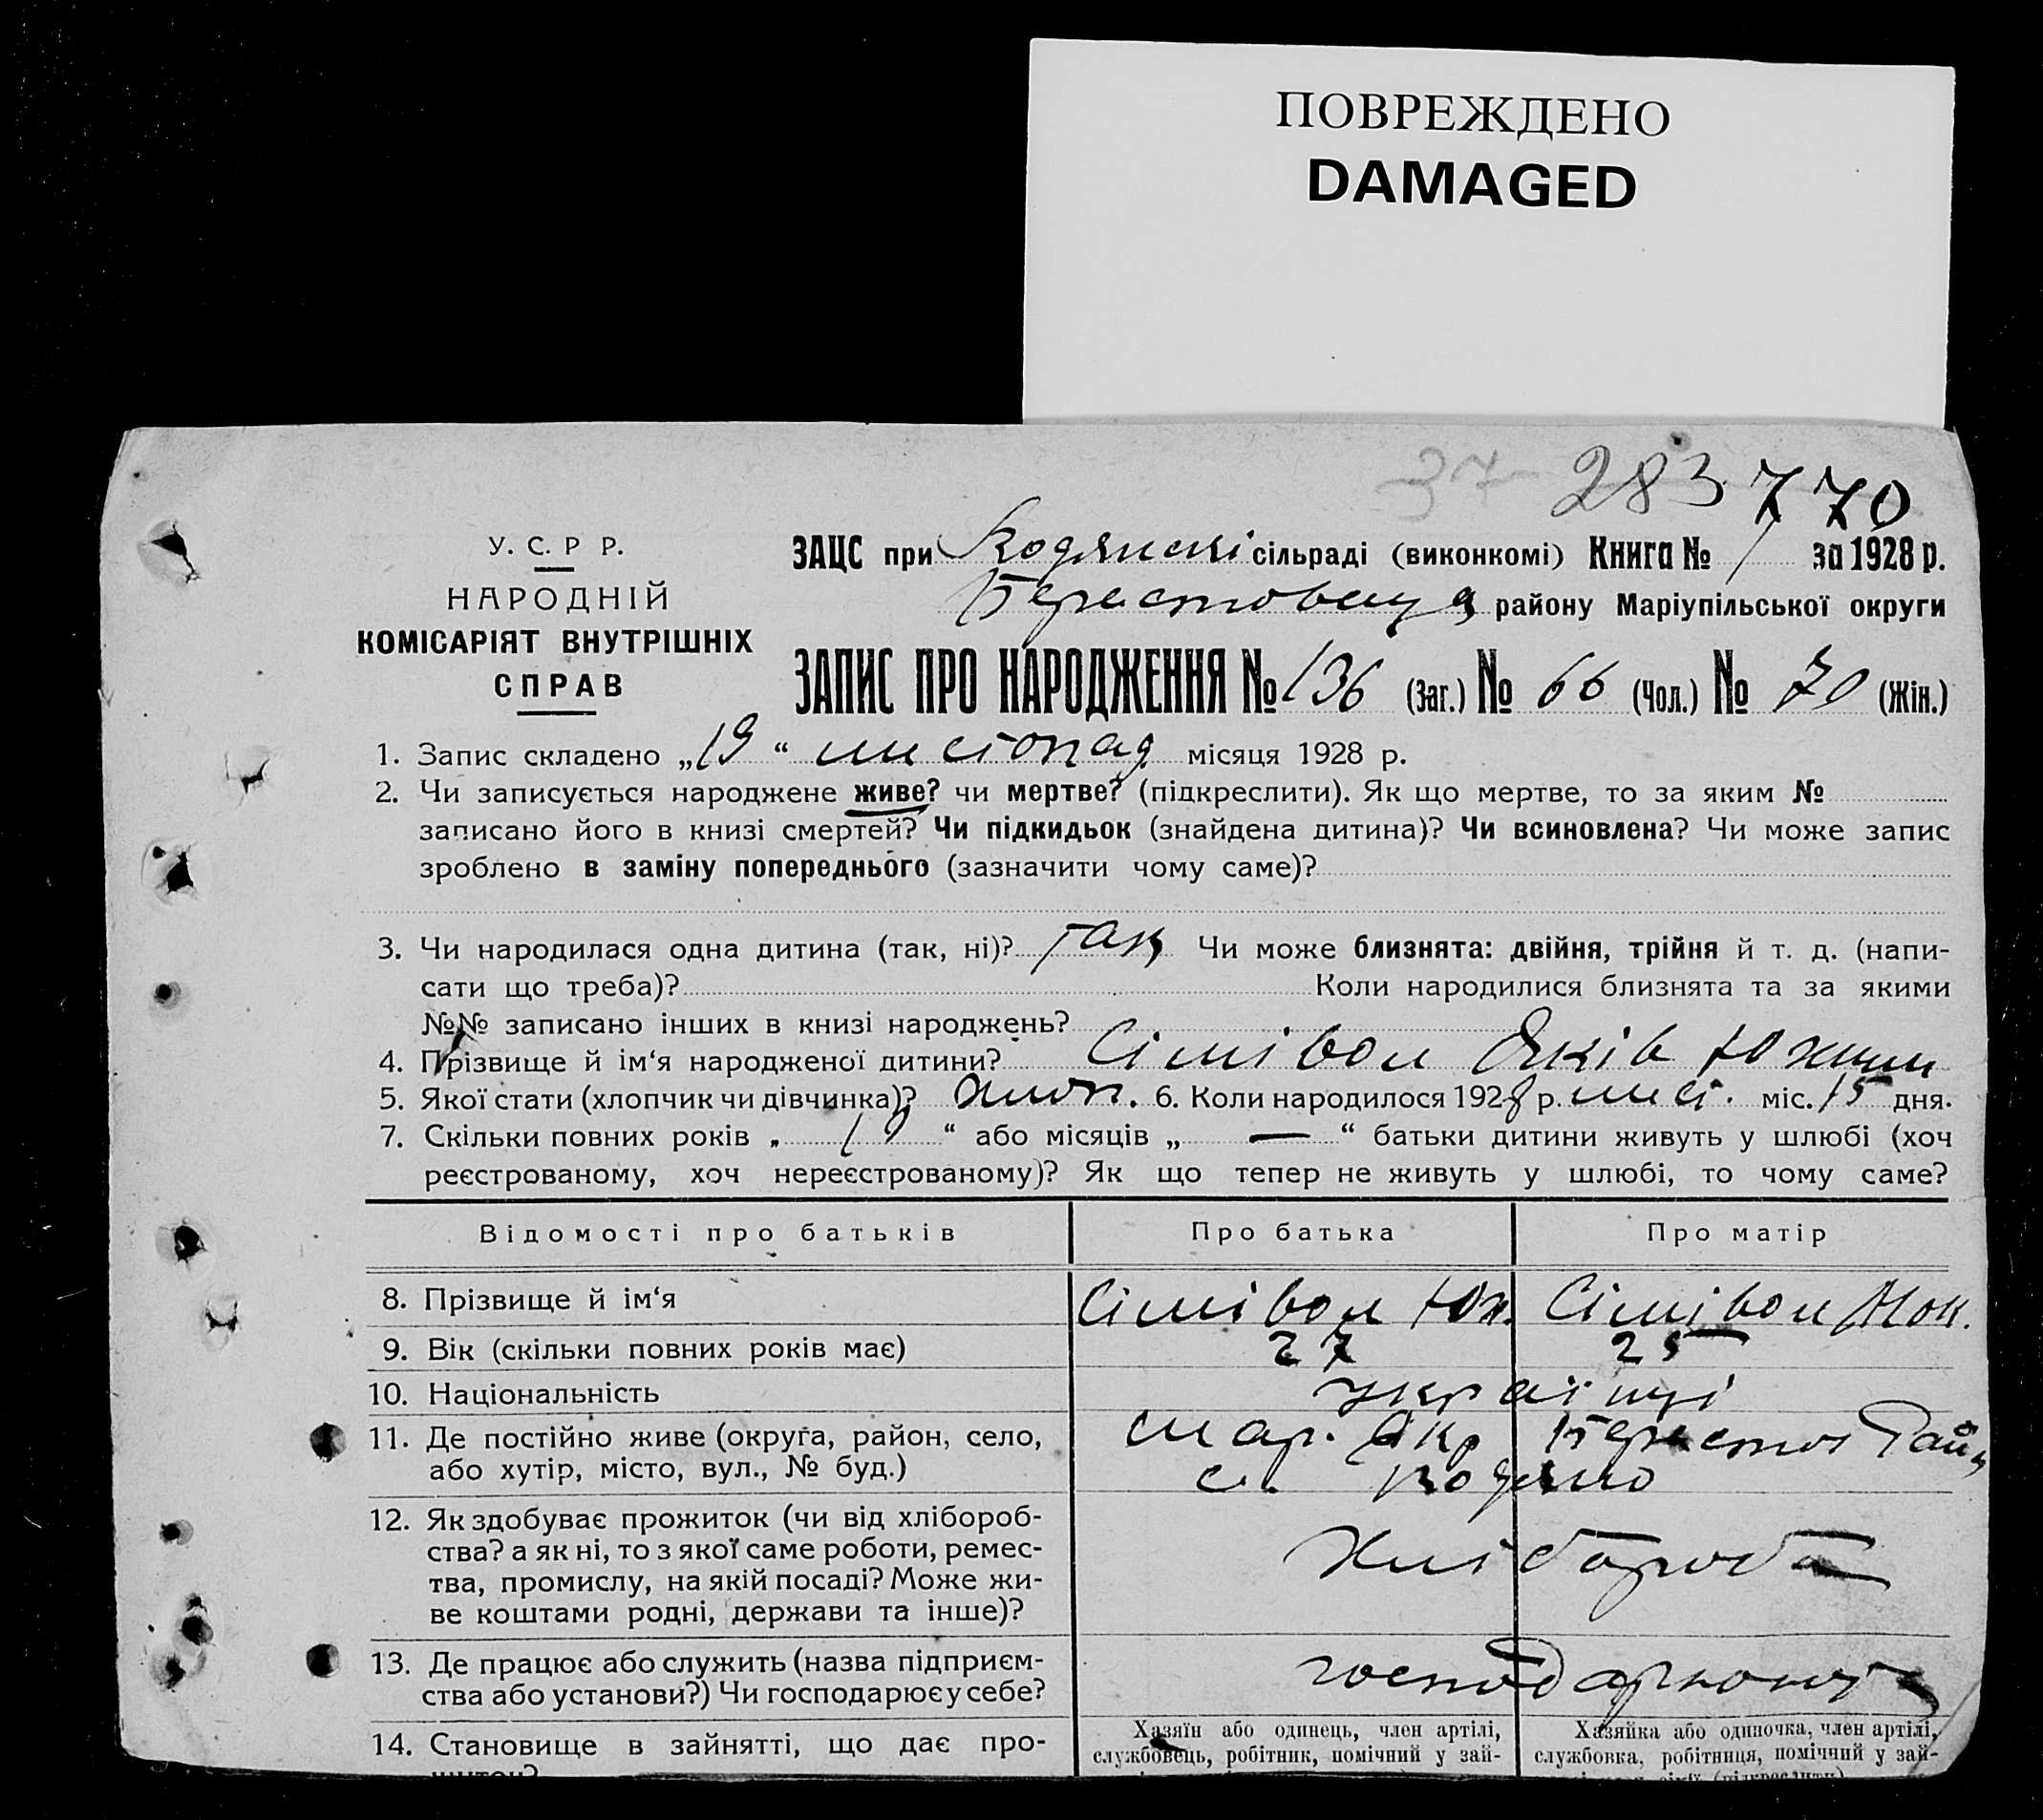 ПОВРЕЖДЕНО
DAMAGED
37 283 770
У. С. Р Р.
НАРОДНІЙ
КОМІСАРІЯТ ВНУТРІШНІХ
СПРАВ
ЗАЦС при Кодянскі сільраді (виконкомі) Книга № 1 за 1928 р.
району Маріупільської округи
ЗАПИС ПРО НАРОДЖЕННЯ № 136 (Заг.) № 66 (Чол.) № 70 (Жін.)
1. Запис складено „19“ листопад місяця 1928 р.
2. Чи записується народжене живе? чи мертве? (підкреслити). Як що мертве, то за яким №
записано його в книзі смертей? Чи підкидьок (знайдена дитина)? Чи всиновлена? Чи може запис
зроблено в заміну попереднього (зазначити чому саме)?
3. Чи народилася одна дитина (так, ні)? так Чи може близнята: двійня, трійня й т. д. (напи-
сати що треба)? Коли народилися близнята та за якими
№№ записано інших в книзі народжень?
4. Прізвище й ім‘я народженої дитини? Сімівол Яків
5. Якої стати (хлопчик чи дівчинка)? хлоп. 6. Коли народилось 1928 р. лист. міс. 15 дня.
7. Скільки повних років „19“ або місяців „—“ батьки дитини живуть у шлюбі (хоч
реєстрованому, хоч нереєстрованому)? Як що тепер не живуть у шлюбі, то чому саме?
Відомості про батьків Про батька Про матір
8. Прізвище й ім‘я Сімівол Сімівол
9. Вік (скільки повних років має) 27 25
10. Національність українці
11. Де постійно живе (округа, район, село, мар. окр Берестов Район
або хутір, місто, вул., № буд.) с. Кодяно
12. Як здобуває прожиток (чи від хлібороб-
ства? а як ні, то з якої саме роботи, ремес-
тва, промислу, на якій посаді? Може жи-
ве коштами родні, держави та інше)?
Хліборобт
13. Де працює або служить (назва підприєм-
ства або установи?) Чи господарює у себе?
господарюють
14. Становище в зайнятті, що дає про-
Хазяїн або одинець, член артілі,
службовець, робітник, помічний у зай-
Хазяйка або одиночка, член артілі,
службовка, робітниця, помічний у зай-